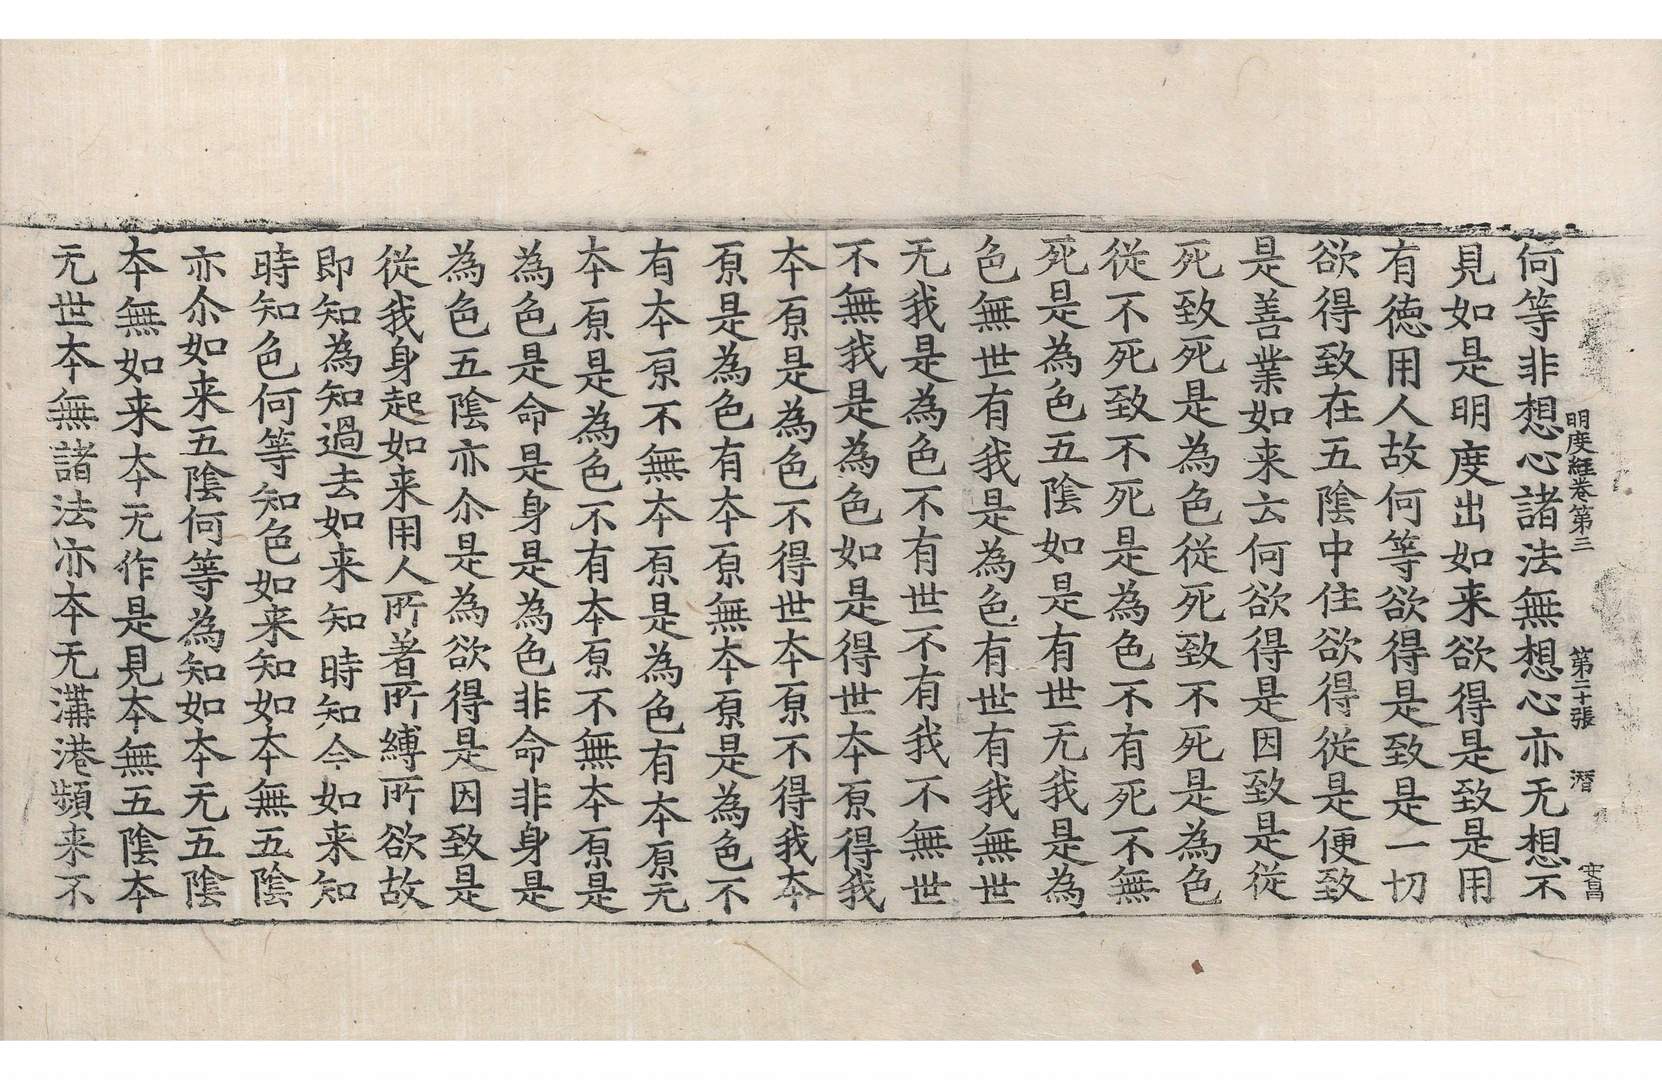 明度經卷第三 第二十張 潛 安昌
何等非想心諸法無想心亦无想不
見如是明度出如来欲得是致是用
有德用人故何等欲得是致是一切
欲得致在五陰中住欲得從是便致
是善業如来云何欲得是因致是從
死致死是為色從死致不死是為色
從不死致不死是為色不有死不無
死是為色五陰如是有世无我是為
色無世有我是為色有世有我無世
无我是為色不有世不有我不無世
不無我是為色如是得世夲原得我
夲原是為色不得世夲原不得我夲
原是為色有夲原無夲原是為色不
有夲原不無夲原是為色有夲原无
夲原是為色不有夲原不無夲原是
為色是命是身是為色非命非身是
為色五陰亦尒是為欲得是因致是
從我身起如来用人所著所縛所欲故
即知為知過去如来知時知今如来知
時知色何等知色如来知如夲無五陰
亦尒如来五陰何等為知如夲无五陰
夲無如来夲无作是見夲無五陰夲
无世夲無諸法亦夲无溝港頻来不